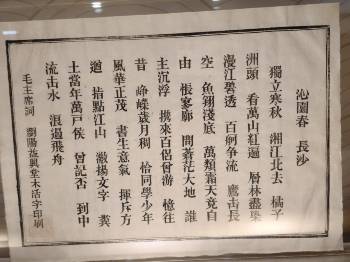 沁園春　長沙
獨立寒秋　湘江北去　橘子
洲頭　看萬山紅遍　層林盡染
漫江碧透　百舸争流　鷹击長
空　魚翔淺底　萬類霜天竞自
由　悵寥廓　問蒼茫大地　誰
主沉浮　携來百侣曾游　憶往
昔　崢嶸歲月稠　恰同學少年
風華正茂　書生意氣　揮斥方
遒　指點江山　激揚文字　糞
土當年萬戸侯　曾記否　到中
流击水　浪遏飛舟
毛主席詞　瀏陽益興堂木活字印刷